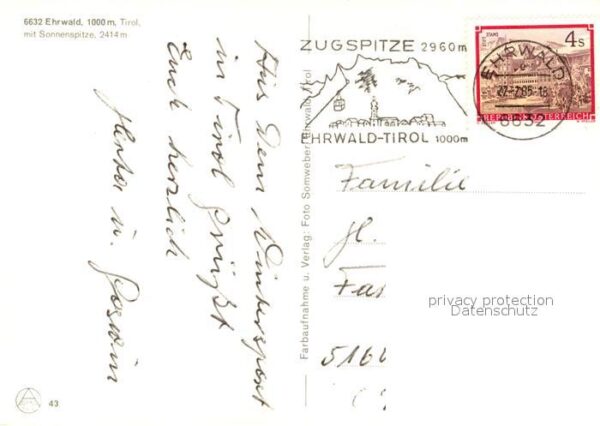 6632 Ehrwald, 1000 m, Tirol,
mit Sonnenspitze, 2414 m
Aus dem Wintersport
in Tirol grüßt
Euch herzlich
u.
43
Farbaufnahme u. Verlag: Foto Somweber, Ehrwald, Tirol
ZUGSPITZE 2960m
EHRWALD-TIROL 1000m
EHRWALD
6632
4 S
STIFT STAMS
REPUBLIK ÖSTERREICH
Familie
H.
Fa
516
privacy protection
Datenschutz